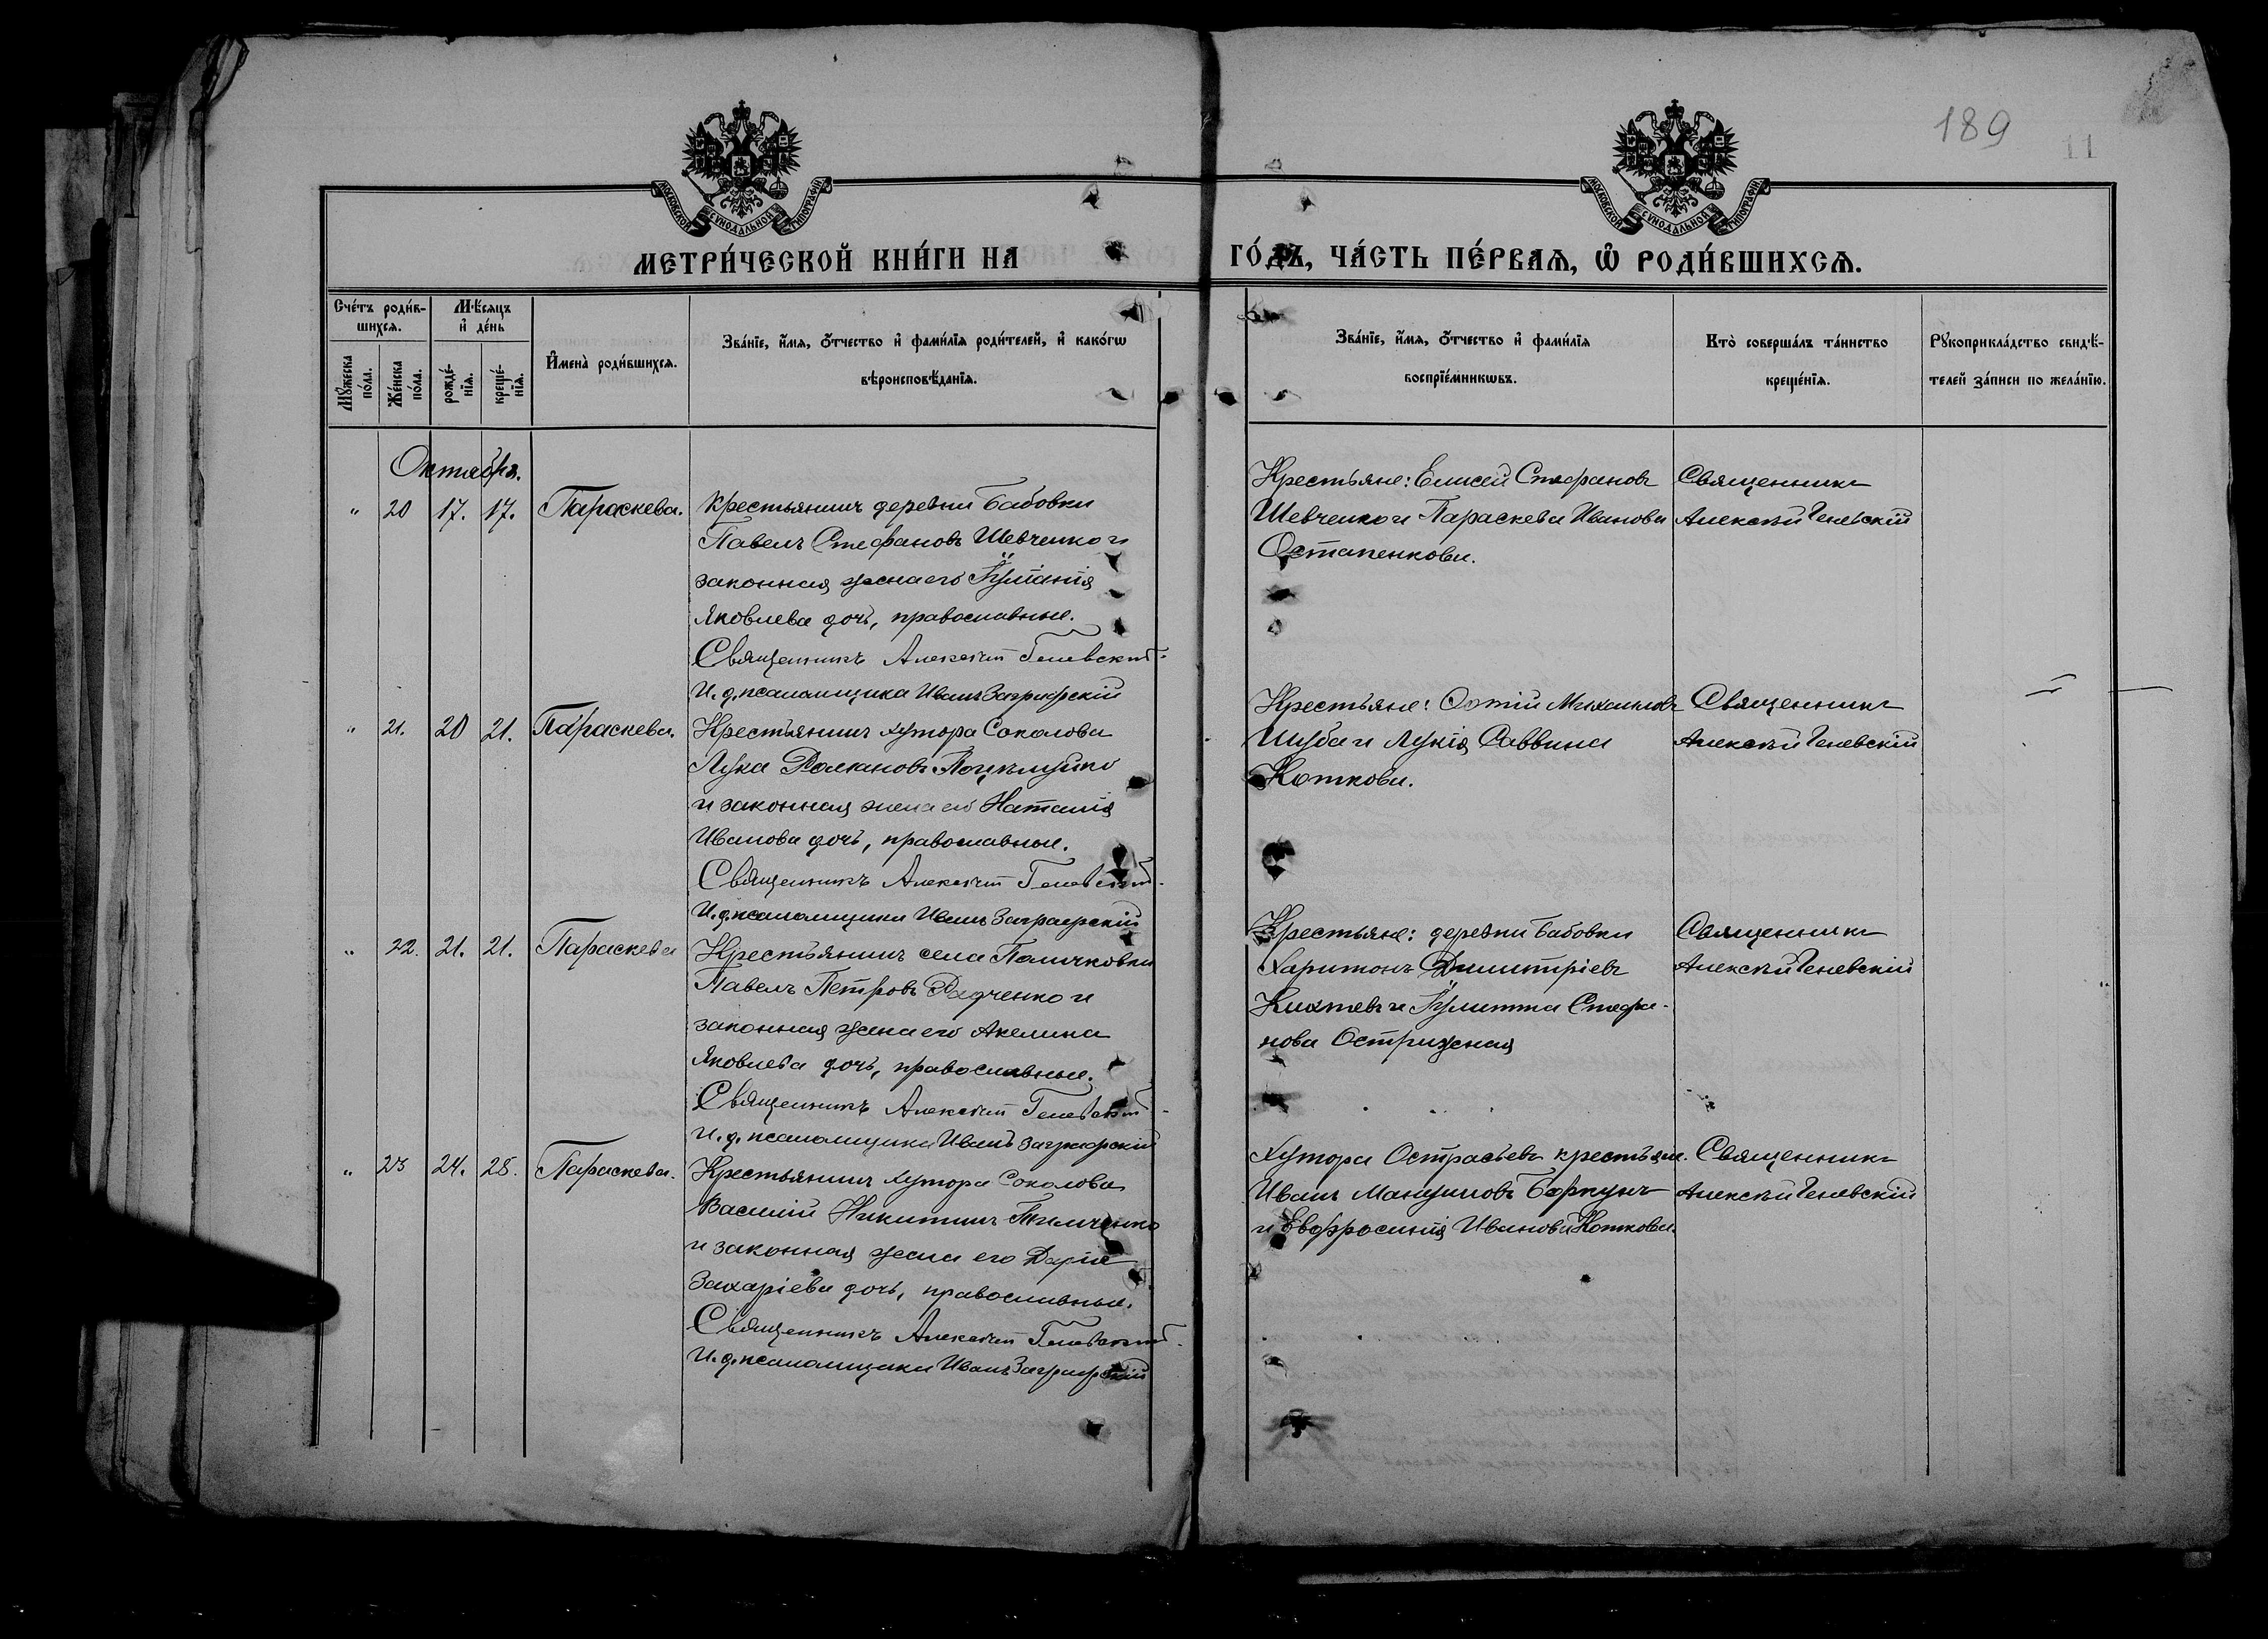 189
11
МОСКОВСКОЙ СѴНОДАЛЬНОЙ ТИПОГРАФІИ
МОСКОВСКОЙ СѴНОДАЛЬНОЙ ТИПОГРАФІИ
МЕТРИ́ЧЕСКОЙ КНИ́ГИ НА
ГО́ДЪ, ЧА́СТЬ ПЕ́РВАѦ, Ѡ҆ РОДИ́ВШИХСѦ.
Сче́тъ роди́в-
шихсѧ.
Мꙋ́жеска
по́ла.
Же́нска
по́ла.
Мѣ́сѧцъ
и҆ де́нь
рожде́-
нїѧ.
креще́-
нїѧ.
И҆мена̀ роди́вшихсѧ.
Зва́нїе, и҆́мѧ, ѻ҆́тчество и҆ фами́лїѧ роди́телей, и҆ како́гѡ
вѣроисповѣ́данїѧ.
Зва́нїе, и҆́мѧ, ѻ҆́тчество и҆ фами́лїѧ
воспрїе́мникѡвъ.
Кто̀ соверша́лъ та́инство
креще́нїѧ.
Рꙋкоприкла́дство свидѣ́-
телей за́писи по жела́нїю.
Октября.
" 20 17. 17. Параскева.
Крестьянинъ деревни Бабовки
Павелъ Стефановъ Шевченко и
законная жена его Іуліанія
Яковлева дочь, православные.
Священникъ Алексѣй Геневский
И. д. псаломщика Иванъ Заграфскій
Крестьяне: Елисей Стефановъ
Шевченко и Параскева Иванова
Остапенкова.
Священникъ
Алексѣй Геневскій
" 21. 20 21. Параскева.
Крестьянинъ хутора Соколова
Лука Романовъ Поцѣлуйко
и законная жена его Наталія
Иванова дочь, православные.
Священникъ Алексѣй Геневский
И. д. псаломщика Иванъ Заграфскій
Крестьяне: Фотій Михаиловъ
Шуба и Лукія Саввина
Коткова.
Священникъ
Алексѣй Геневскій
" 22. 21. 21. Параскева
Крестьянинъ села Поличковки
Павелъ Петровъ Радченко и
законная жена его Акелина
Яковлева дочь, православные.
Священникъ Алексѣй Геневский
И. д. псаломщика Иванъ Заграфскій
Крестьяне: деревни Бабовки
Харитонъ Димитріевъ
и Іулитта Стефа-
нова Остриженая
Священникъ
Алексѣй Геневскій
" 23 24. 25. Параскева.
Крестьянинъ хутора Соколова
Василій Никитинъ Тимченко
и законная жена его Дарія
Захаріева дочь, православные.
Священникъ Алексѣй Геневский
И. д. псаломщика Иванъ Заграфскій
Хутора Острасьевъ крестьяне.
Иванъ Мануиловъ Боркунъ
и Евфросинія Иванова Коткова.
Священникъ
Алексѣй Геневскій